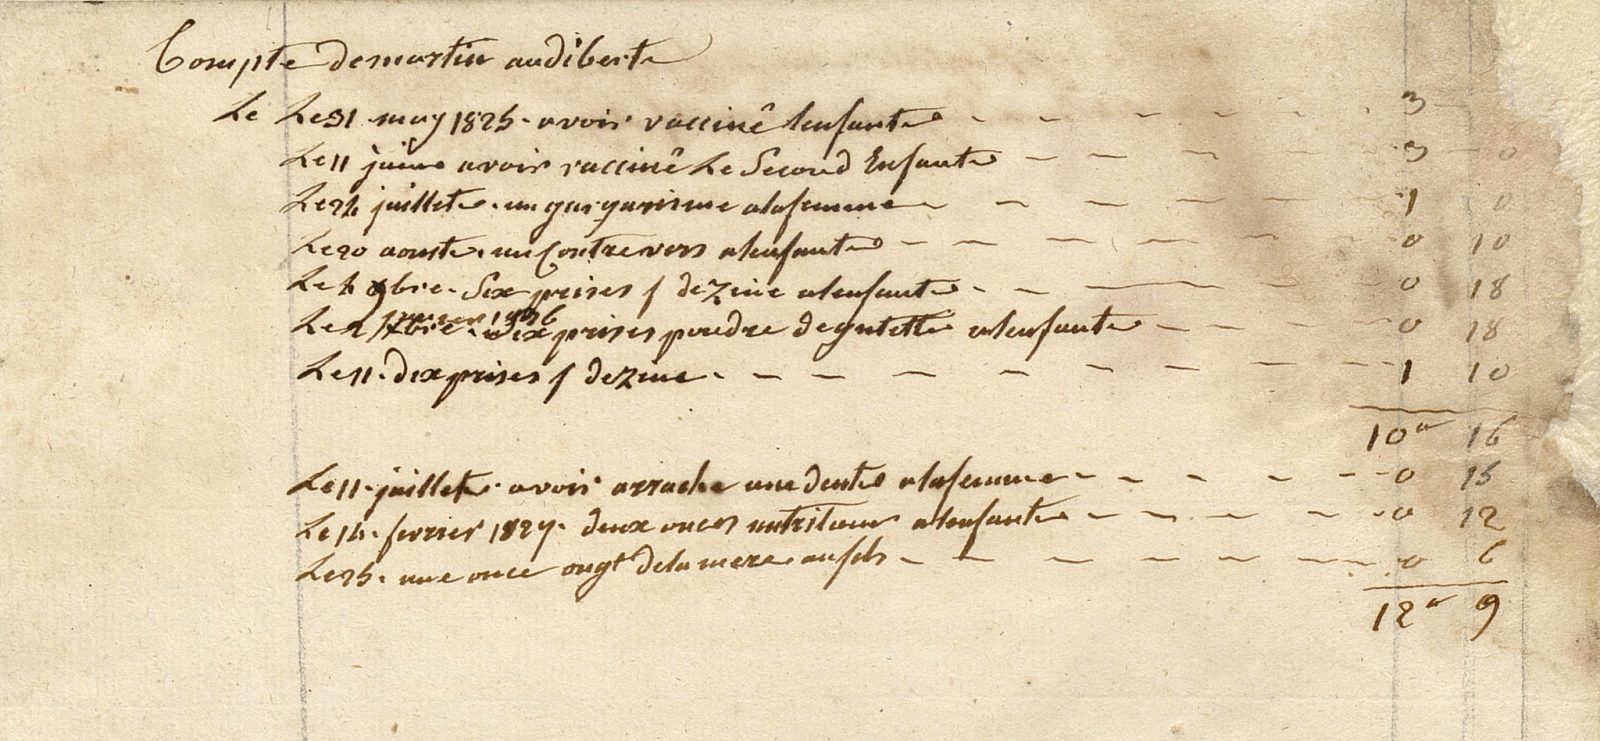 Compte demartin audiberte
Le Le 31 may 1825 avoir vacciné lenfante - - - 3
Le 11 juine avoir vacciné Le Second Enfante - - - 3 0
Le 24 juillete un gargarisme alafemme - - - 1 0
Le 20 aouste un Contrevers alenfante - - - 0 10
Le 4 9bre Six prises f dezinc alenfante - - - 0 18
Le 2 janvier 1826 Six prises poudre degutette alenfante - - - 0 18
Le 11 dix prises f dezinc - - - 1 10
10 16
Le 11 juillete avoir arrache une dente alafemme - - - 0 15
Le 14 fevrier 1827 deux onces nutritum alenfante - - - 0 12
Le 25 une once ongt delamere aufils - - - 0 6
12 9